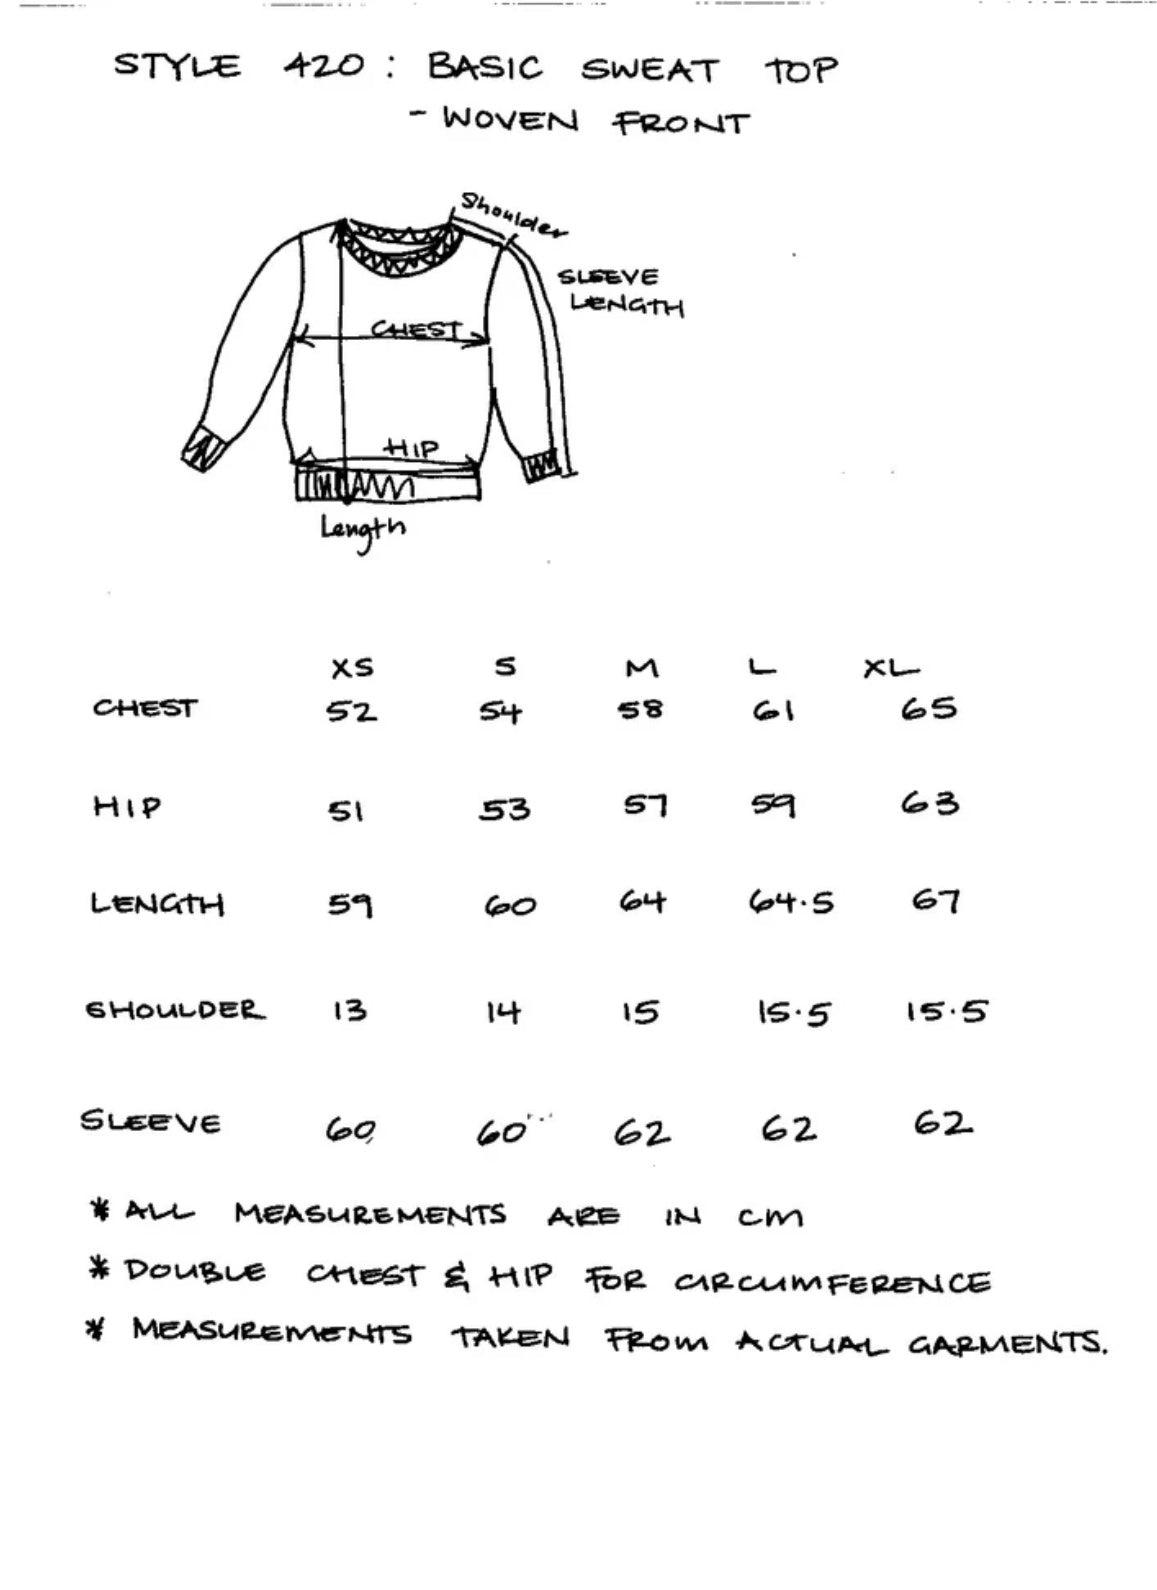 STYLE 420 : BASIC SWEAT TOP
- WOVEN FRONT
Shoulder
SLEEVE
LENGTH
CHEST
HIP
Length
XS S M L XL
CHEST 52 54 58 61 65
HIP 51 53 57 59 63
LENGTH 59 60 64 64.5 67
SHOULDER 13 14 15 15.5 15.5
SLEEVE 60 60 62 62 62
* ALL MEASUREMENTS ARE IN CM
* DOUBLE CHEST & HIP FOR CIRCUMFERENCE
* MEASUREMENTS TAKEN FROM ACTUAL GARMENTS.